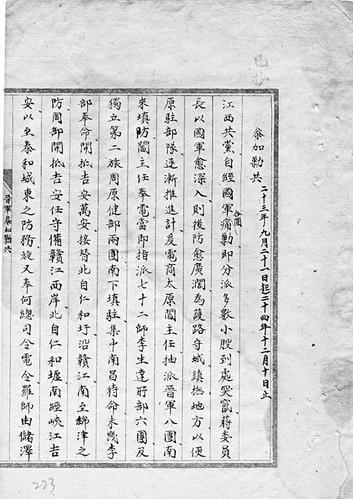 參加勦共
二十三年九月二十一日起二十四年十二月十日止
江西共黨自經國軍痛勦即分派多數小股到處哭竄蔣委員
合圍
長以國軍愈深入則後防愈廣濶為護路守城鎮撫地方以便
原駐部隊逐漸推進計爰電商太原閻主任抽派晉軍八團南
來填防閻主任奉電當即指派七十二師李生達所部六團及
獨立第二旅周原健部兩團南下填駐集中南昌待命未幾李
部奉命開抵吉安萬安接替北自仁和圩沿贛江南至綿津之
防周部開抵吉安任守備贛江西岸北自仁和墟南經峽江吉
安以至泰和城東之防務旋又奉何總司令電令羅師由儲潭
晉軍參加勦共
223